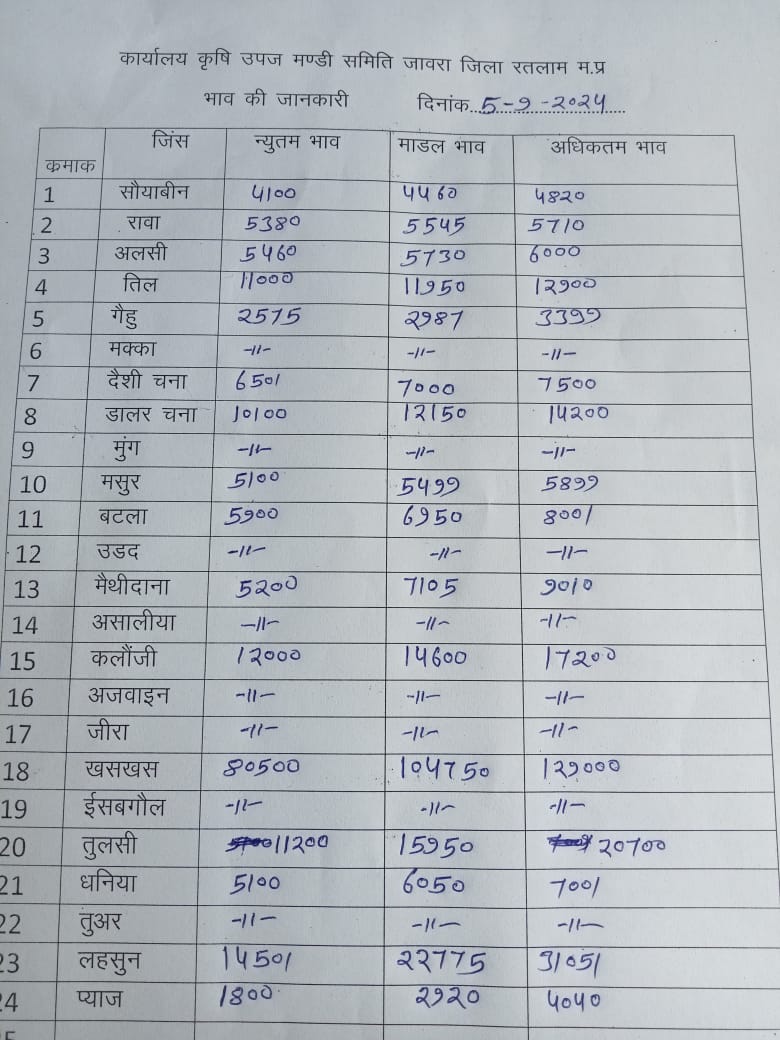 कार्यालय कृषि उपज मण्डी समिति जावरा जिला रतलाम म.प्र
भाव की जानकारी दिनांक..5-9-2024
कमाक जिंस न्युतम भाव माडल भाव अधिकतम भाव
1 सौयाबीन 4100 4460 4820
2 रावा 5380 5545 5710
3 अलसी 5460 5730 6000
4 तिल 11000 11950 12900
5 गैहु 2575 2987 3399
6 मक्का -11- -11- -11-
7 दैशी चना 6501 7000 7500
8 डालर चना 10100 12150 14200
9 मुंग -11- -11- -11-
10 मसुर 5100 5499 5899
11 बटला 5900 6950 8001
12 उडद -11- -11- -11-
13 मैथीदाना 5200 7105 9010
14 असालीया -11- -11- -11-
15 कलौंजी 12000 14600 17200
16 अजवाइन -11- -11- -11-
17 जीरा -11- -11- -11-
18 खसखस 80500 104750 129000
19 ईसबगौल -11- -11- -11-
20 तुलसी 11200 15950 20700
21 धनिया 5100 6050 7001
22 तुअर -11- -11- -11-
23 लहसुन 14501 22775 31051
24 प्याज 1800 2920 4040